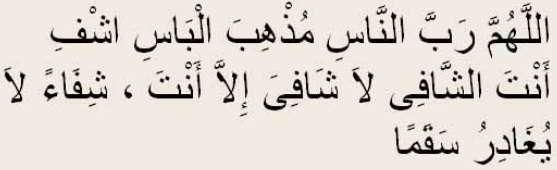 اللَّهُمَّ رَبَّ النَّاسِ مُذْهِبَ الْبَاسِ اشْفِ
أَنْتَ الشَّافِى لاَ شَافِىَ إِلاَّ أَنْتَ ، شِفَاءً لاَ
يُغَادِرُ سَقَمًا